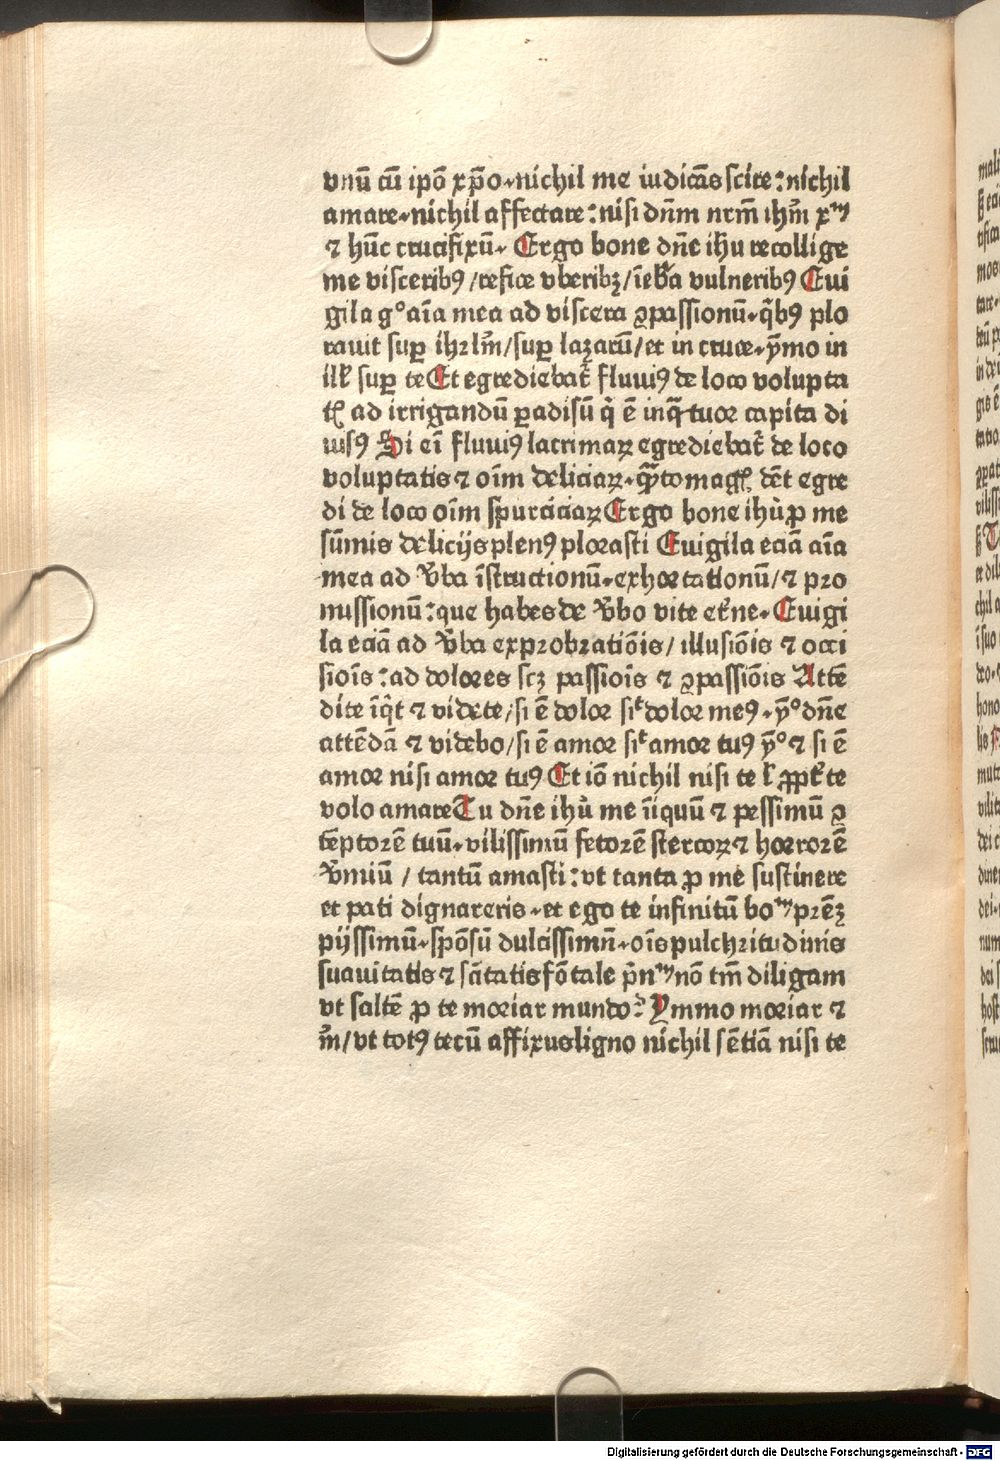 vnū cū ipō xp̄o·nichil me iudicās scire:nichil
amare·nichil affectare:nisi dn̄m nrm̄ ihm̄ xᵐ
⁊ hūc crucifixū· Ergo bone dn̄e ihu recollige
me visceribꝰ/refice vberibꝫ/īeb̾a vulneribꝰ Eui
gila gᵒ aīa mea ad viscera ꝯpassionū·q̄bꝰ plo
rauit suꝑ ihrl̄m/suꝑ lazarū/et in cruce·ȳmo in
ill̄ suꝑ te Et egrediebat̄ fluuiꝰ de loco volupta
tꝭ ad irrigandū ꝑadisū q̇ ē inq̄ tuor capita di
uisꝰ Si eī fluuiꝰ lacrimaꝝ egrediebat̄ de loco
voluptatis ⁊ oīm deliciaꝝ·q̄to magꝭ dēt egre
di de loco oīm spurciciaꝝ Ergo bone ihu̇ ꝓ me
sūmis delicijs plenꝰ plorasti Euigila eciā aīa
mea ad v̾ba īstructionū·exhortationū/⁊ pro
missionū:que habes de v̾bo vite et̾ne· Euigi
la eciā ad v̾ba exprobratiōis/illusiōis ⁊ occi
sioīs:ad dolores scꝫ passioīs ⁊ ꝯpassiōis Attē
dite īq̇t ⁊ videte/si ē dolor siᵗ dolor meꝰ·ȳᵒ dn̄e
attēdā ⁊ videbo/si ē amor siᵗ amor tuꝰ ȳᵒ ⁊ si ē
amor nisi amor tuꝰ Et iō nichil nisi te l̄ ꝓpt̾ te
volo amare Tu dn̄e ihu̇ me īiquū ⁊ pessimū ꝯ
tēptorē tuū·vilissimū fetorē stercoꝝ ⁊ horrorē
v̾miū / tantū amasti:vt tanta ꝓ me sustinere
et pati dignareris·et ego te infinitū boᵐ prēꝫ
pijssimū·spōsū dulcissimn̄·oīs pulchritudinis
suauitatis ⁊ sāitatis fōtale p̄nᵐ nō tm̄ diligam
vt saltē ꝓ te moriar mundo? Ymmo moriar ⁊
m̄/vt totꝰ tecū affixus ligno nichil sētiā nisi te
Digitalisierung gefördert durch die Deutsche Forschungsgemeinschaft - DFG